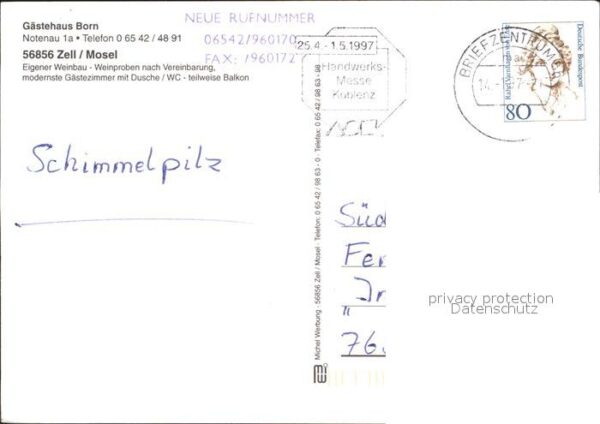 Gästehaus Born
Notenau 1a • Telefon 0 65 42 / 48 91
56856 Zell / Mosel
Eigener Weinbau - Weinproben nach Vereinbarung,
modernste Gästezimmer mit Dusche / WC - teilweise Balkon
NEUE RUFNUMMER
06542/960170
FAX: /960172
25.4.-1.5.1997
Handwerks-
Messe
Koblenz
BRIEFZENTRUM
Deutsche Bundespost
80
Schimmelpilz
Michel Werbung - 56856 Zell / Mosel - Telefon: 0 65 42 / 98 63 - 0 - Telefax: 0 65 42 / 98 63 - 98
Süd
Fer
"Ir
76.
privacy protection
Datenschutz